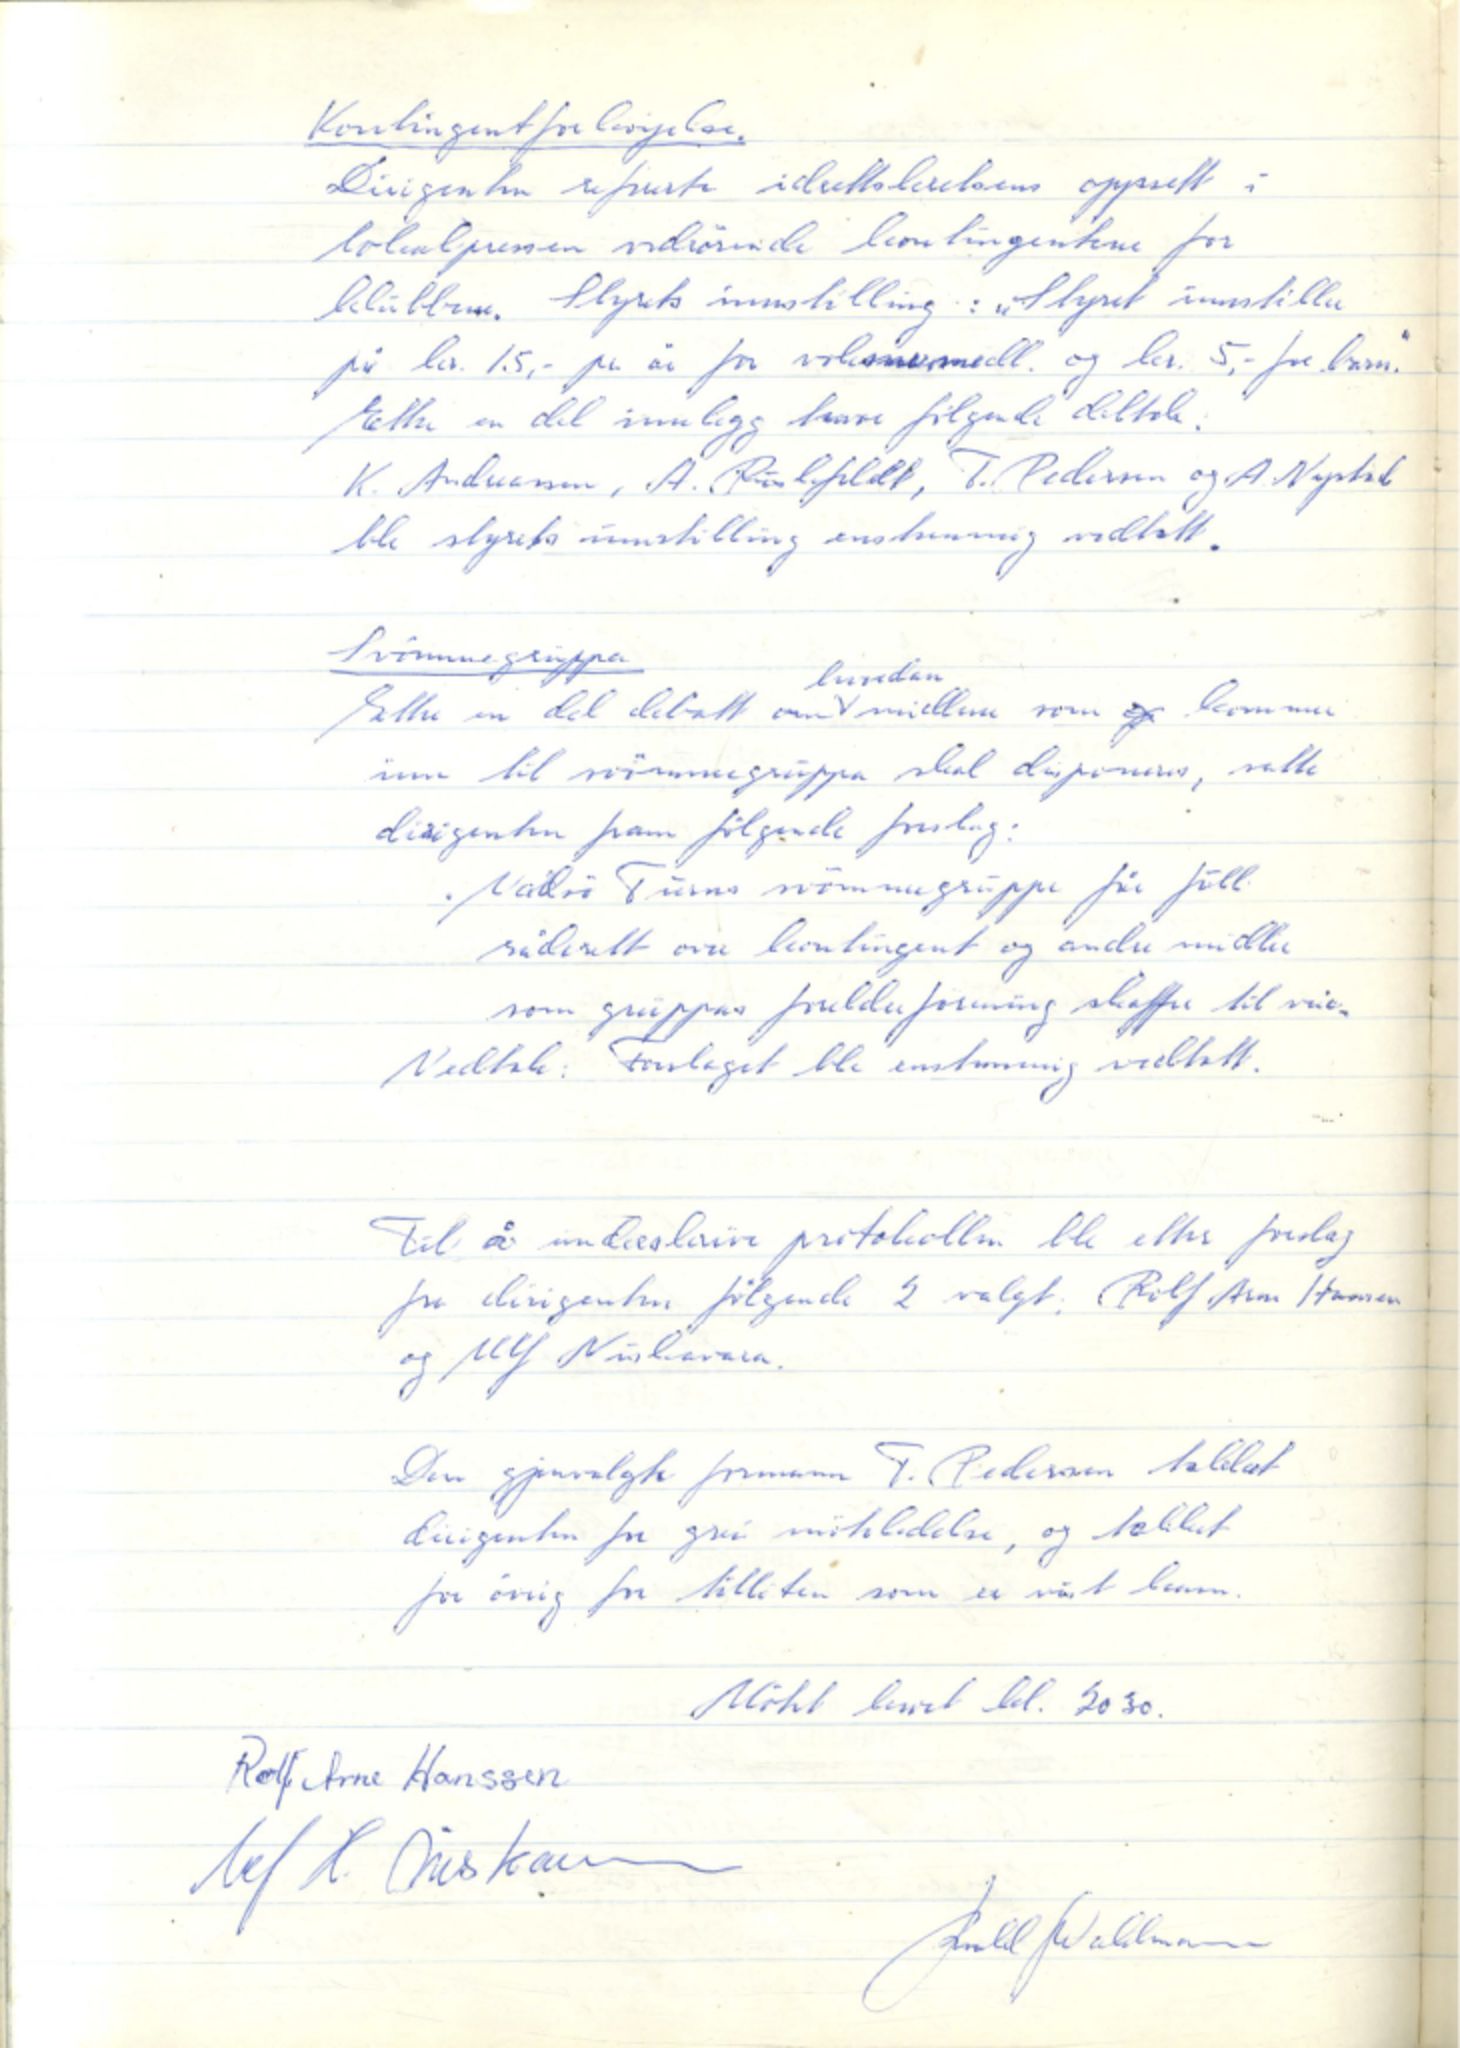 Kontingentforhøyelse.
Dirigenten refererte idrettskretsens oppsett i
lokalpressen vedrörende kontingentene for
klubbene. Styrets innstilling: "Styret innstiller
på kr. 15,- pr. år for voksne medl. og kr. 5,- for barn."
Etter en del innlegg hvor fölgende deltok:
K. Andreassen, A. Ruslefeldt, T. Pedersen og A. Nystad
ble styrets innstilling enstemmig vedtatt.
Svömmegruppa
hvordan
Etter en del debatt om midlene som kommer
inn til svömmegruppa skal disponeres, satte
dirigenten fram fölgende forslag:
Vadsö Turns svömmegruppe får full
råderett over kontingent og andre midler
som gruppas foreldreforening skaffer til veie.
Vedtak: Forslaget ble enstemmig vedtatt.
Til å underskrive protokollen ble etter forslag
fra dirigenten fölgende 2 valgt: Rolf Arne Hanssen
og Ulf Niskavara.
Den gjenvalgte formann T. Pedersen takket
dirigenten for grei möteledelse, og takket
for övrig for tilliten som er vist ham.
Mötet hevet kl. 20 30.
Rolf Arne Hanssen
Ulf H. Niskavara
Waldmann